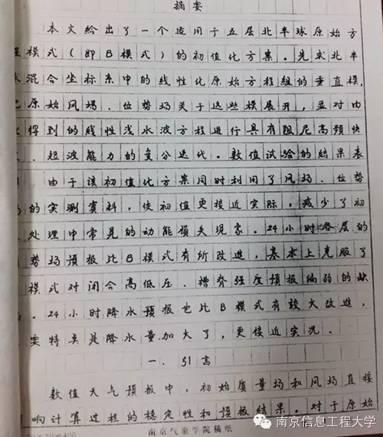 摘要
本文给出了一个适用于五层北半球原始方
模式(即B模式)的初值化方案。先求北半
水混合坐标系中的线性化原始方程组的垂直模,
原始风场、位势场关于这些模展开,并对由
得到的线性浅水波方程进行具有阻尼高频快
、短波能力的复合迭代。数值试验的结果表
由于该初值化方案同时利用了风场、位势
的实测资料,使初值更接近实际,减少了初
处理中常见的动能损失现象。24小时各层的
势场预报比B模式有所改进,基本上克服了
模式对闭合高低压、槽脊强度预报偏弱的缺
。24小时降水预报也比B模式有较大改进,
突特点是降水量加大了,更接近实况。
一、引言
数值天气预报中,初始质量场和风场直接
响计算过程的稳定性和预报结果。对于原始
南京气象学院稿纸
南京信息工程大学